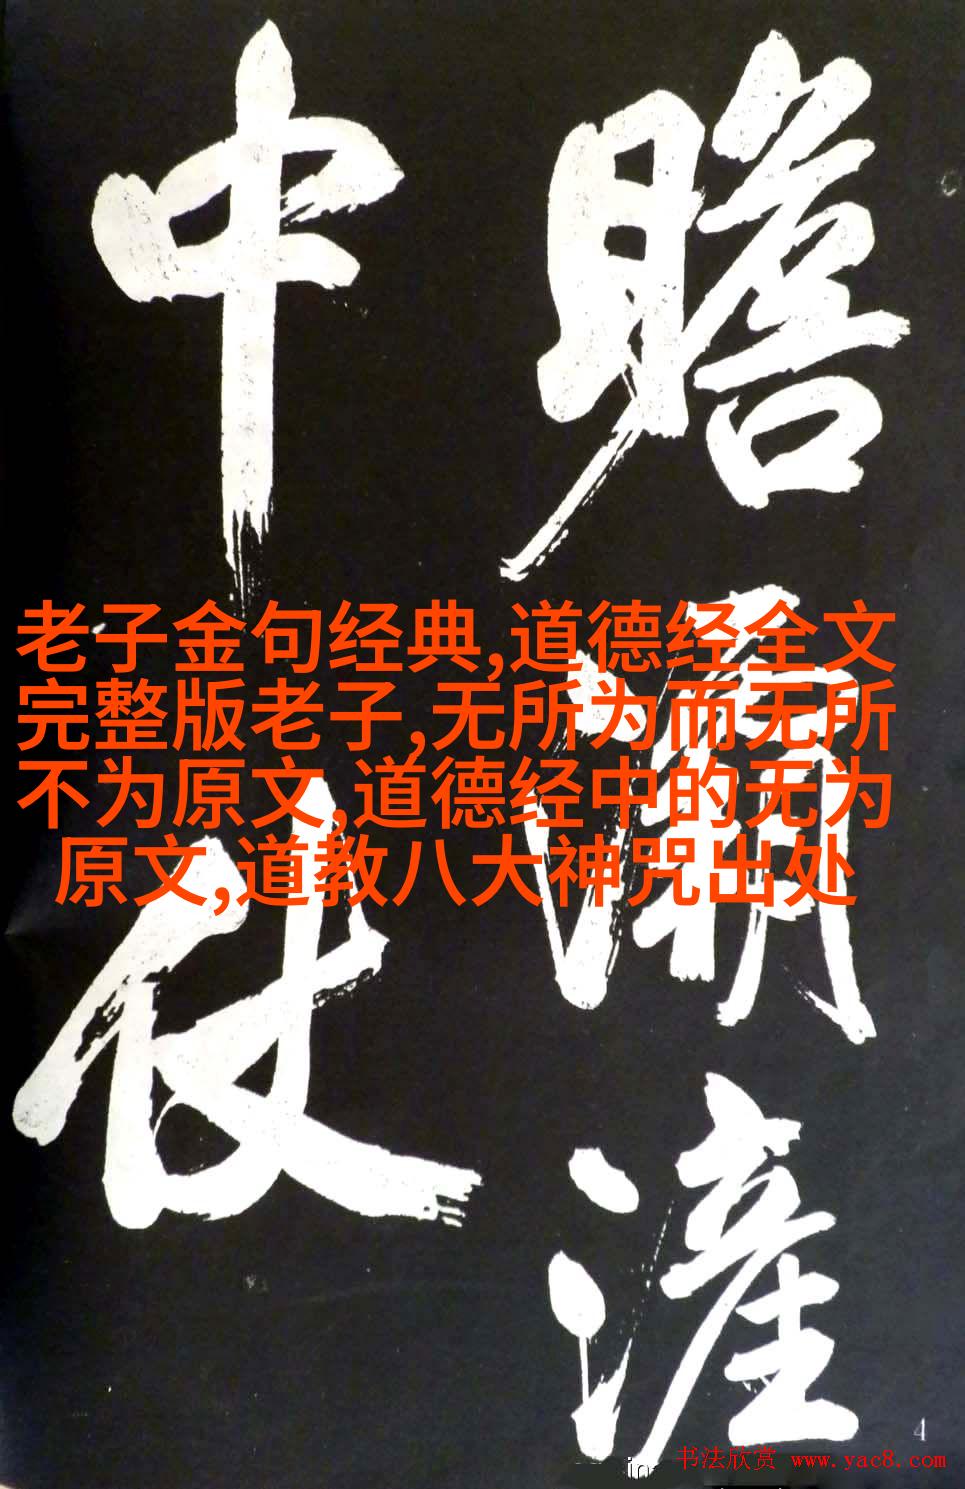 瞻灞滻
中仗
老子金句经典,道德经全文
完整版老子,无所为而无所
不为原文,道德经中的无为
原文,道教八大神咒出处
4
书法欣赏 www.yac8.com